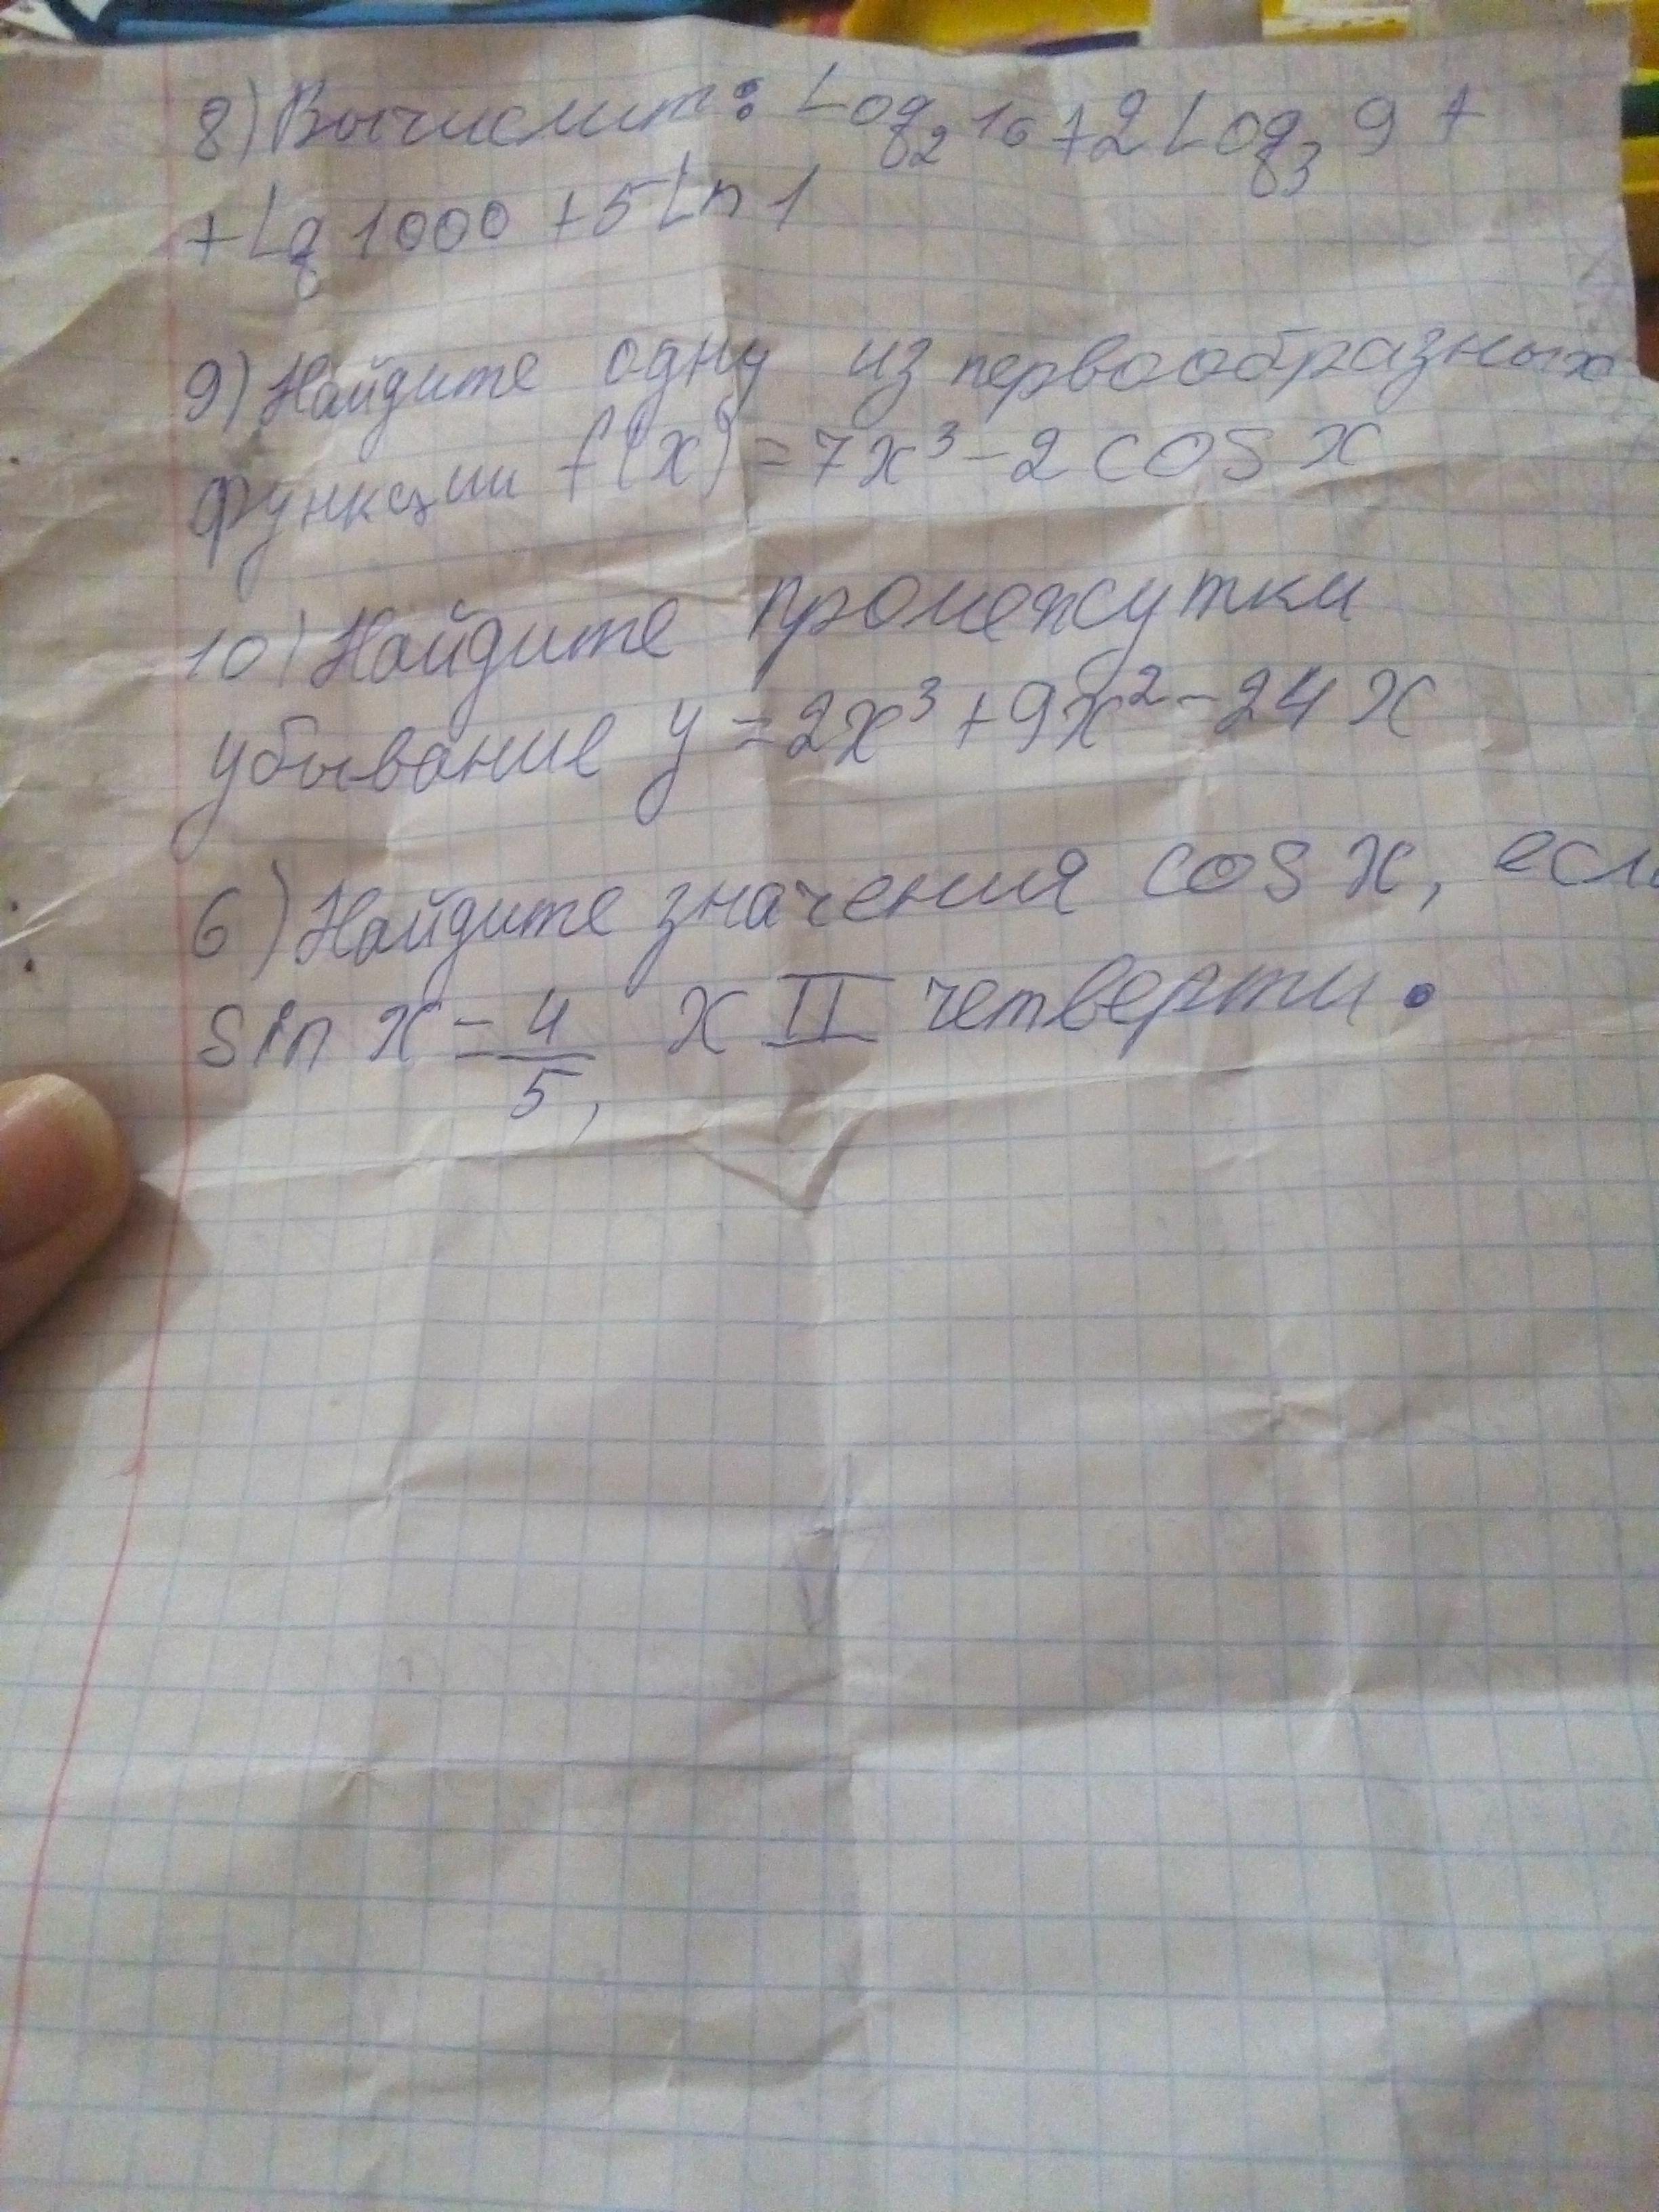 8) Вычислит: Log₂ 16 + 2 Log₃ 9 +
+ Lg 1000 + 5 Ln 1
9) Найдите одну из первообразных
функции f(x) = 7x³ - 2 cos x
10) Найдите промежутки
убывание y = 2x³ + 9x² - 24x
6) Найдите значения cos x, если
sin x = 4/5, x II четверти.